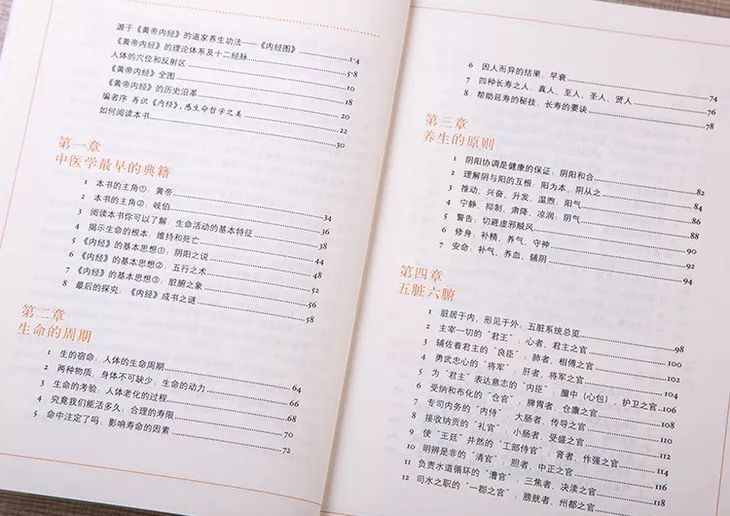 源于《黄帝内经》的道家养生功法——《内经图》 1·4
《黄帝内经》的理论体系及十二经脉 5·8
人体的穴位和反射区 10
《黄帝内经》全图 18
《黄帝内经》的历史沿革 20
编者序 再识《内经》,感生命哲学之美 22
如何阅读本书 30
第一章
中医学最早的典籍
1 本书的主角①:黄帝 34
2 本书的主角②:岐伯 36
3 阅读本书你可以了解:生命活动的基本特征 38
4 揭示生命的根本:维持和死亡 44
5 《内经》的基本思想①:阴阳之说 48
6 《内经》的基本思想②:五行之术 52
7 《内经》的基本思想③:脏腑之象 56
8 最后的探究:《内经》成书之谜 58
第二章
生命的周期
1 生的宿命:人体的生命周期 64
2 两种物质,身体不可缺少:生命的动力 66
3 生命的考验:人体老化的过程 68
4 究竟我们能活多久:合理的寿限 70
5 命中注定了吗:影响寿命的因素 72
6 因人而异的结果:早衰 74
7 四种长寿之人:真人、至人、圣人、贤人 76
8 帮助延寿的秘技:长寿的要诀 78
第三章
养生的原则
1 阴阳协调是健康的保证:阴阳和合 82
2 理解阴与阳的互根:阳为本,阴从之 84
3 推动、兴奋、升发、温煦:阳气 86
4 宁静、抑制、肃降、凉润:阴气 88
5 警告:切避虚邪贼风 90
6 修身:补精、养气、守神 92
7 安命:补气、养血、辅阴 94
第四章
五脏六腑
1 脏居于内,形见于外:五脏系统总览 98
2 主宰一切的“君王”:心者,君主之官 100
3 辅佐着君主的“良臣”:肺者,相傅之官 102
4 勇武忠心的“将军”:肝者,将军之官 104
5 为“君主”表达意志的“内臣”:膻中(心包),护卫之官 106
6 受纳和布化的“仓官”:脾胃者,仓廪之官 108
7 专司内务的“内侍”:大肠者,传导之官 110
8 接收纳贡的“礼官”:小肠者,受盛之官 112
9 使“王廷”井然的“工部侍官”:肾者,作强之官 114
10 明辨是非的“清官”:胆者,中正之官 116
11 负责水道循环的“漕官”:三焦者,决渎之官 118
12 司水之职的“一郡之官”:膀胱者,州都之官